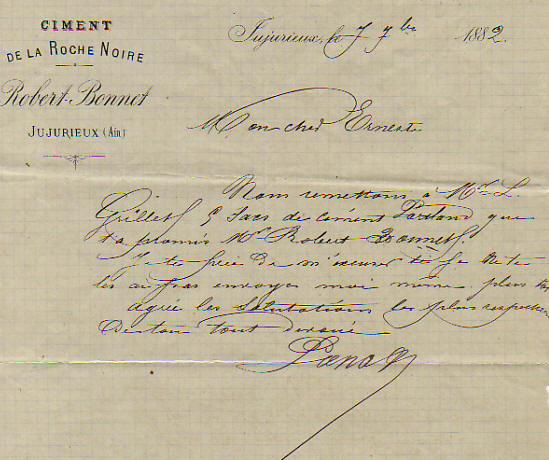 CIMENT
DE LA ROCHE NOIRE
Robert-Bonnet
JUJURIEUX (Ain)
Jujurieux, le 7 7bre 1882.
Mon cher Ernest
Nous remettons à Mr L.
Grillet 5 sacs de ciment Portland que
t'a promis Mr Robert Bonnet.
Je te prie de m'excuser si je ne te
les ai pas envoyés moi même plus
agrée les salutations les plus respectueuses
De ton tout dévoué